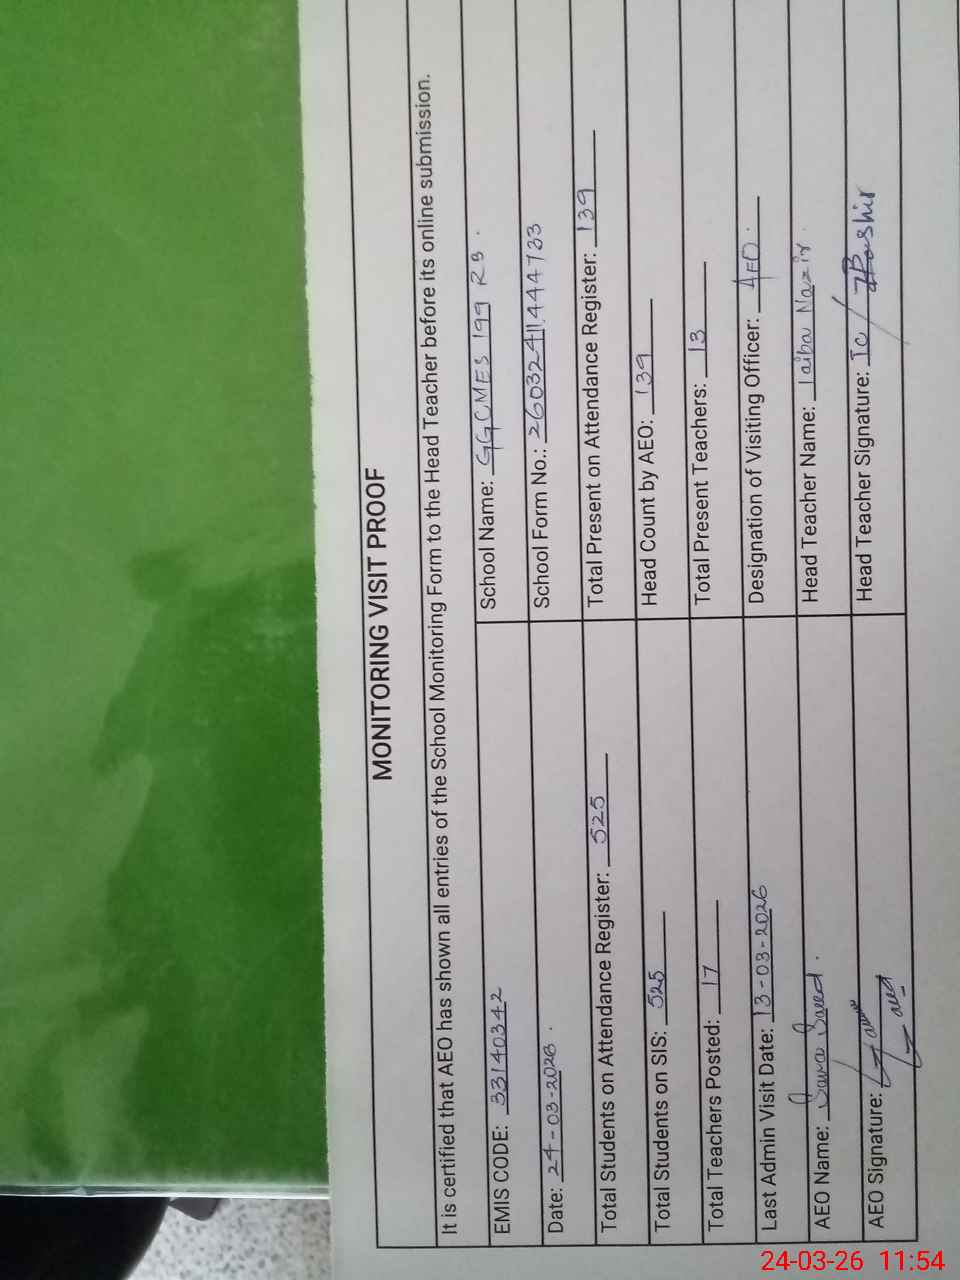 MONITORING VISIT PROOF
It is certified that AEO has shown all entries of the School Monitoring Form to the Head Teacher before its online submission.
EMIS CODE: 33140342 School Name: GGCMES 199 RB.
Date: 24-03-2026. School Form No.: 26032411444733
Total Students on Attendance Register: 525 Total Present on Attendance Register: 139
Total Students on SIS: 525 Head Count by AEO: 139
Total Teachers Posted: 17 Total Present Teachers: 13
Last Admin Visit Date: 13-03-2026 Designation of Visiting Officer: AEO.
AEO Name: Sara Saeed. Head Teacher Name: Taiba Nazir.
AEO Signature: Head Teacher Signature: Ic/ Bashir
24-03-26 11:54